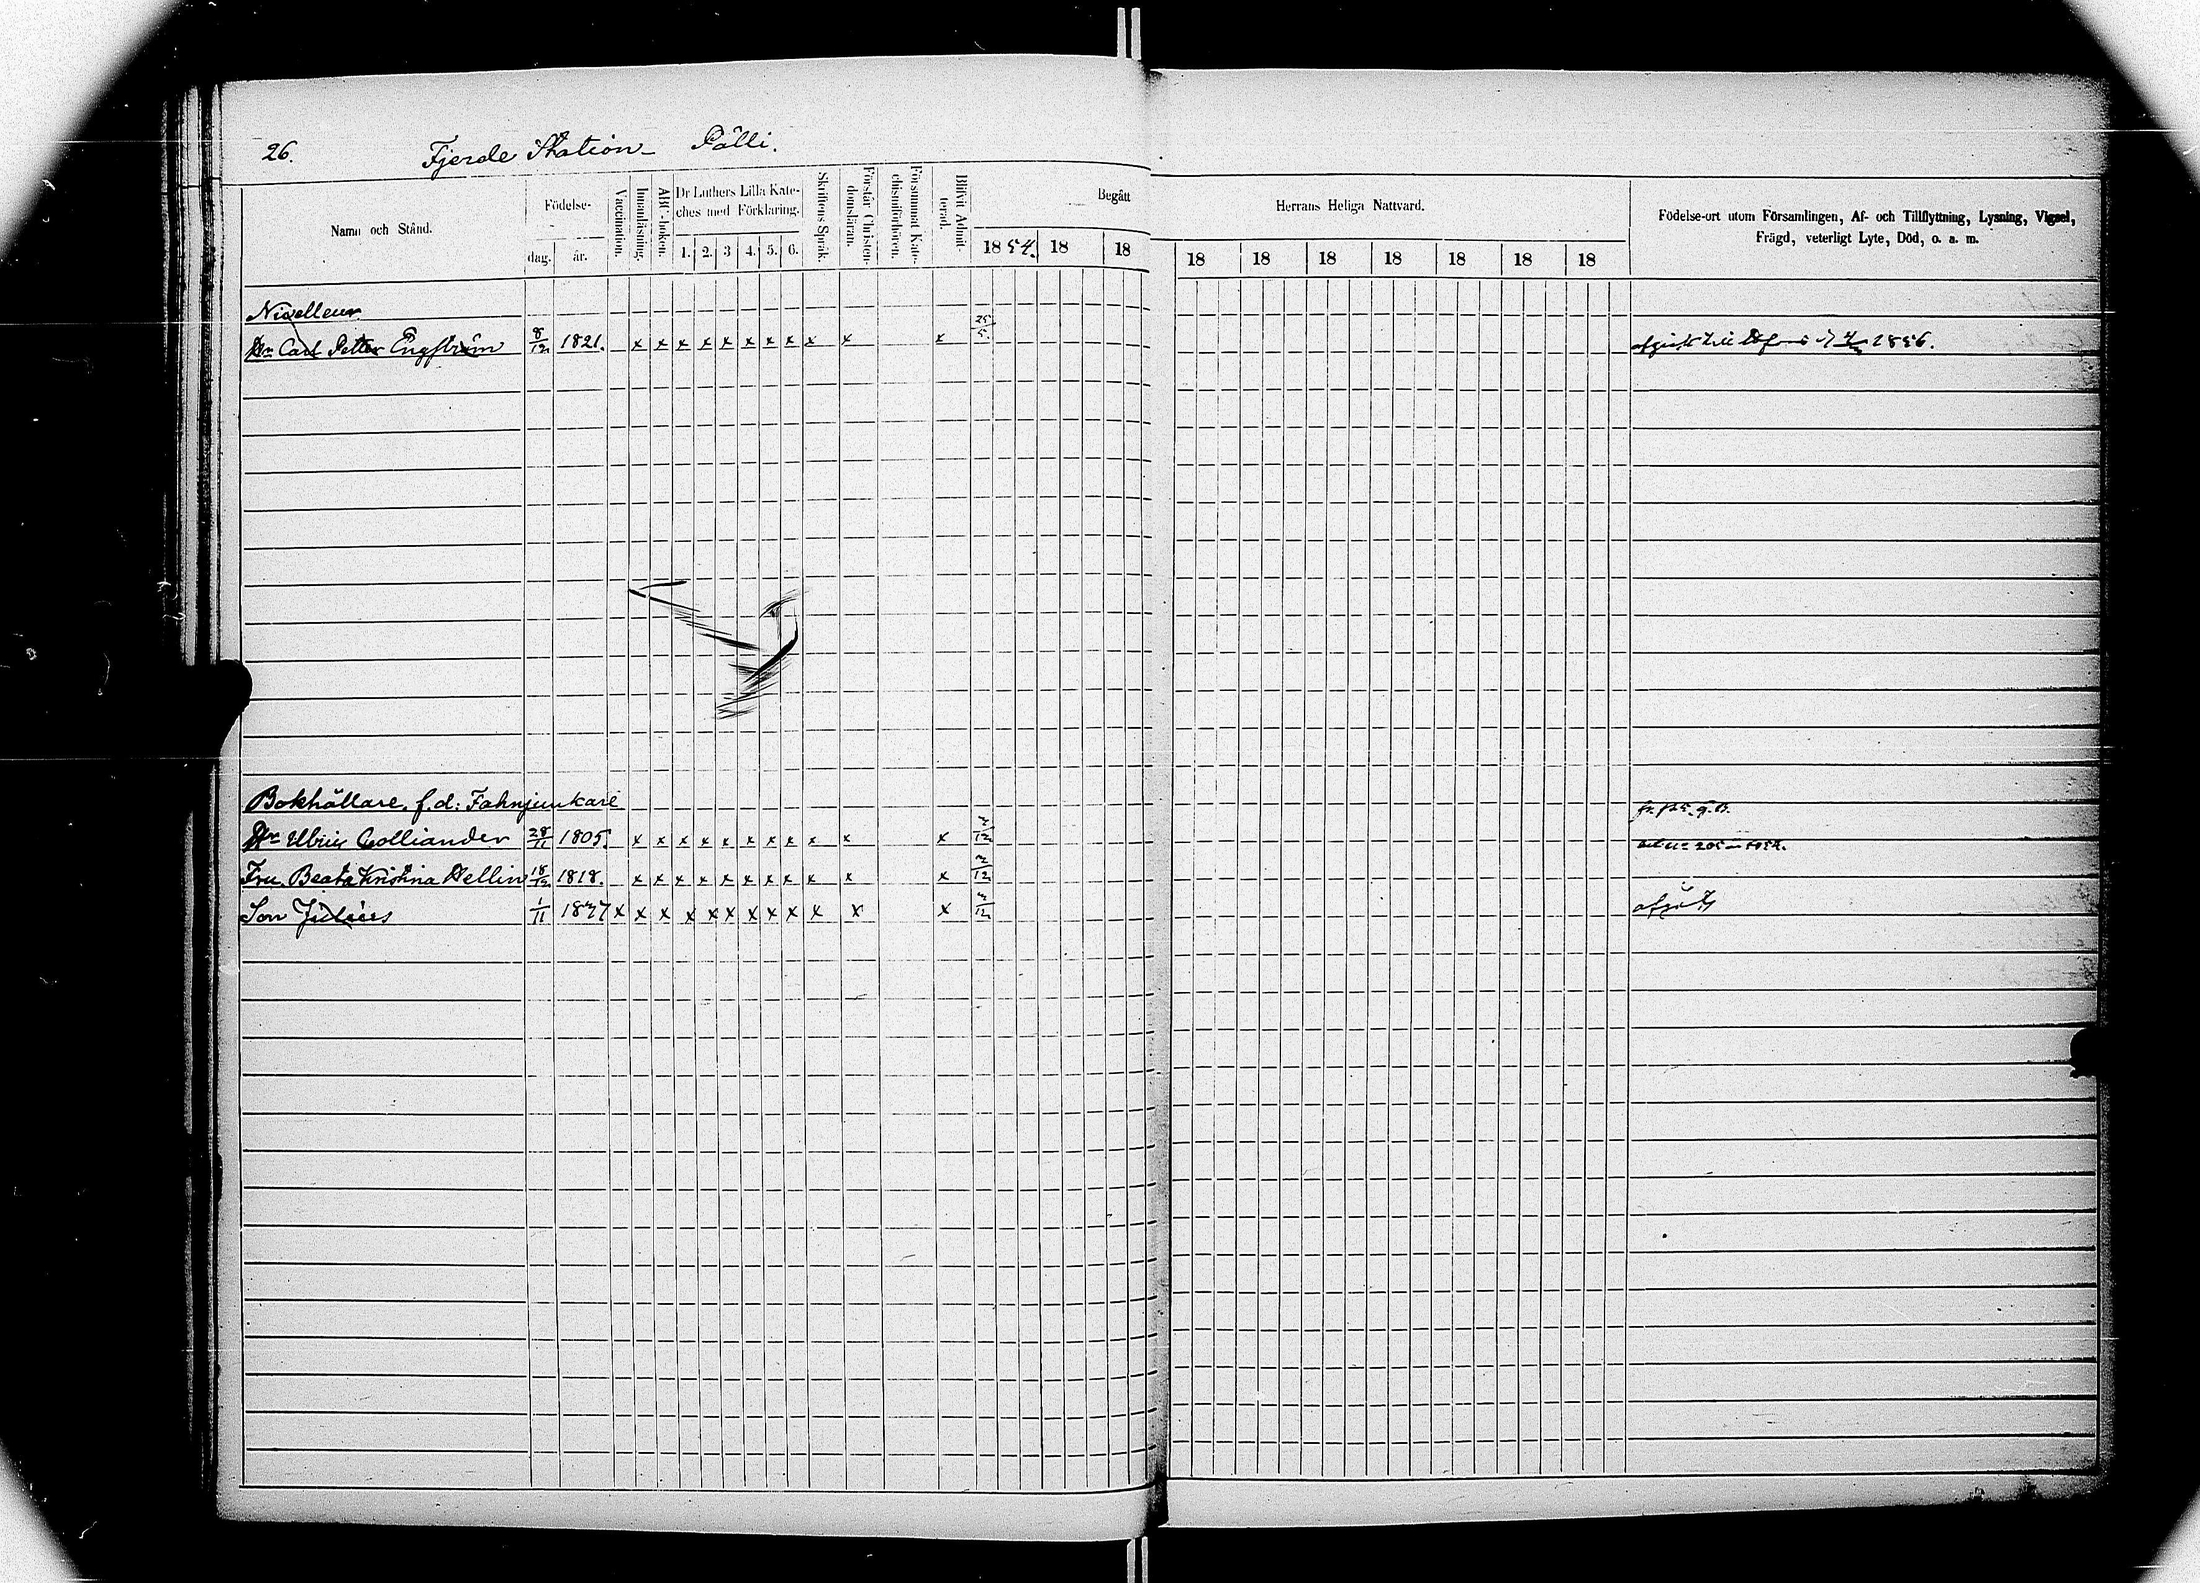 26. Fjerde Station Pälli.
Namn och Stånd.
Födelse-
dag. år.
Vaccination.
Innanläsning.
ABC-boken.
Dr Luthers Lilla Kate-
ches med Förklaring.
1. 2. 3 4. 5. 6.
Skriftens Språk.
Förstår Christen-
domsläran.
Försummat Kate-
chismiförhören.
Blifvit Admit-
terad.
Begått Herrans Heliga Nattvard.
1854. 18 18 18 18 18 18 18 18 18
Födelse-ort utom Församlingen, Af- och Tillflyttning, Lysning, Vigsel,
Frägd, veterligt Lyte, Död, o. a. m.
Nivelleur
Hr Carl Petter Engström 8/12 1821. x x x x x x x x x x x 25/5. 1856.
Bokhållare, f.d: Fahnjunkare
Hr Ulric Colliander 28/11 1805. x x x x x x x x x x x /12
Fru Beata Kristina Hellin 18/12 1818. x x x x x x x x x x x /12
Son Julius 1/11 1837 x x x x x x x x x x x x /12